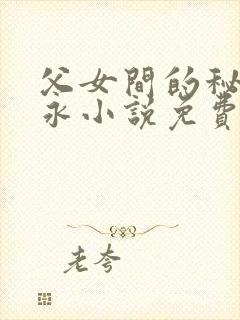 父女間的秘
永小說免費
老夸